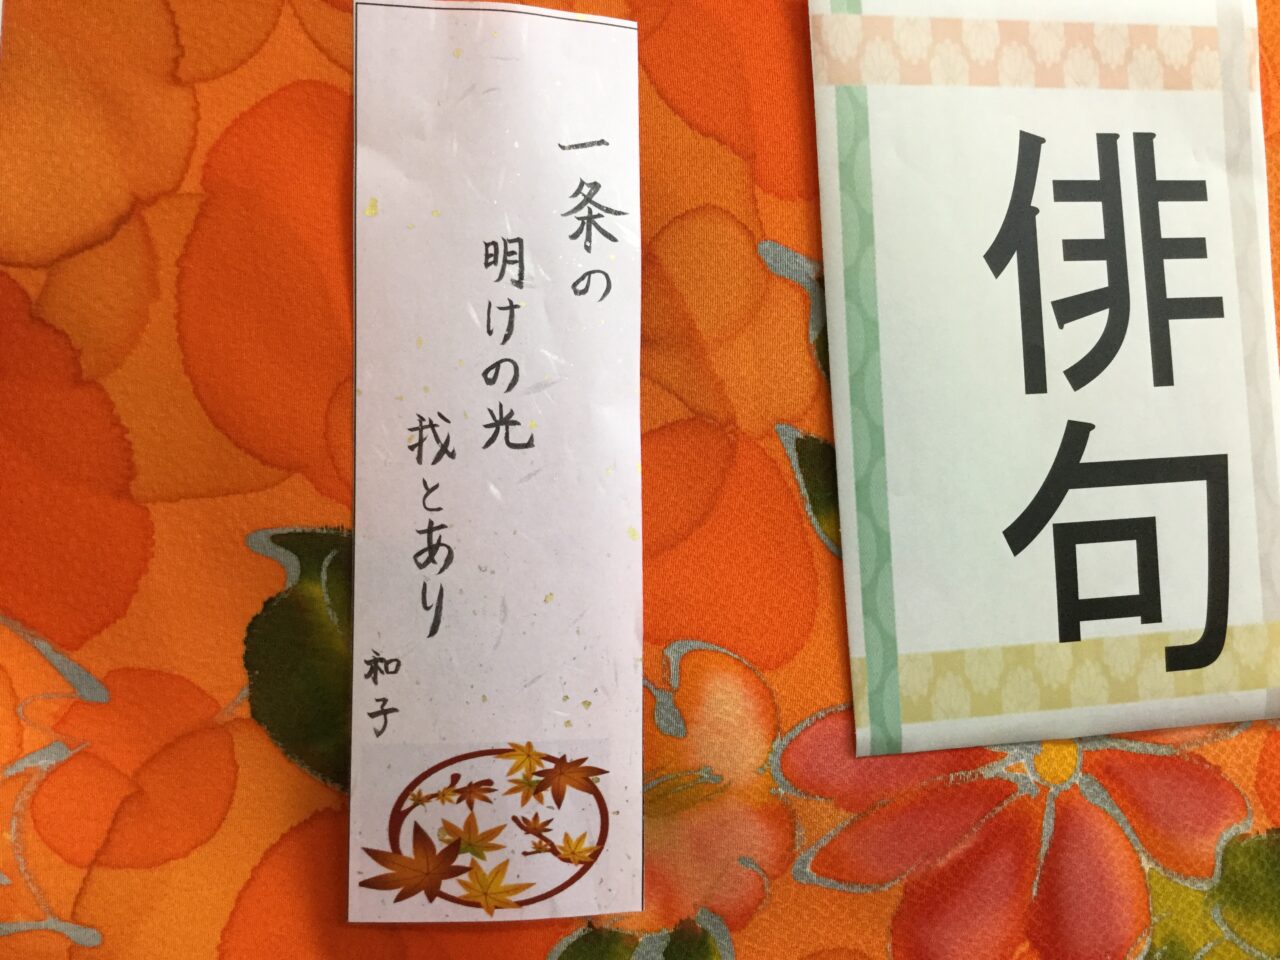 俳句
一条の
明けの光
我とあり
和子